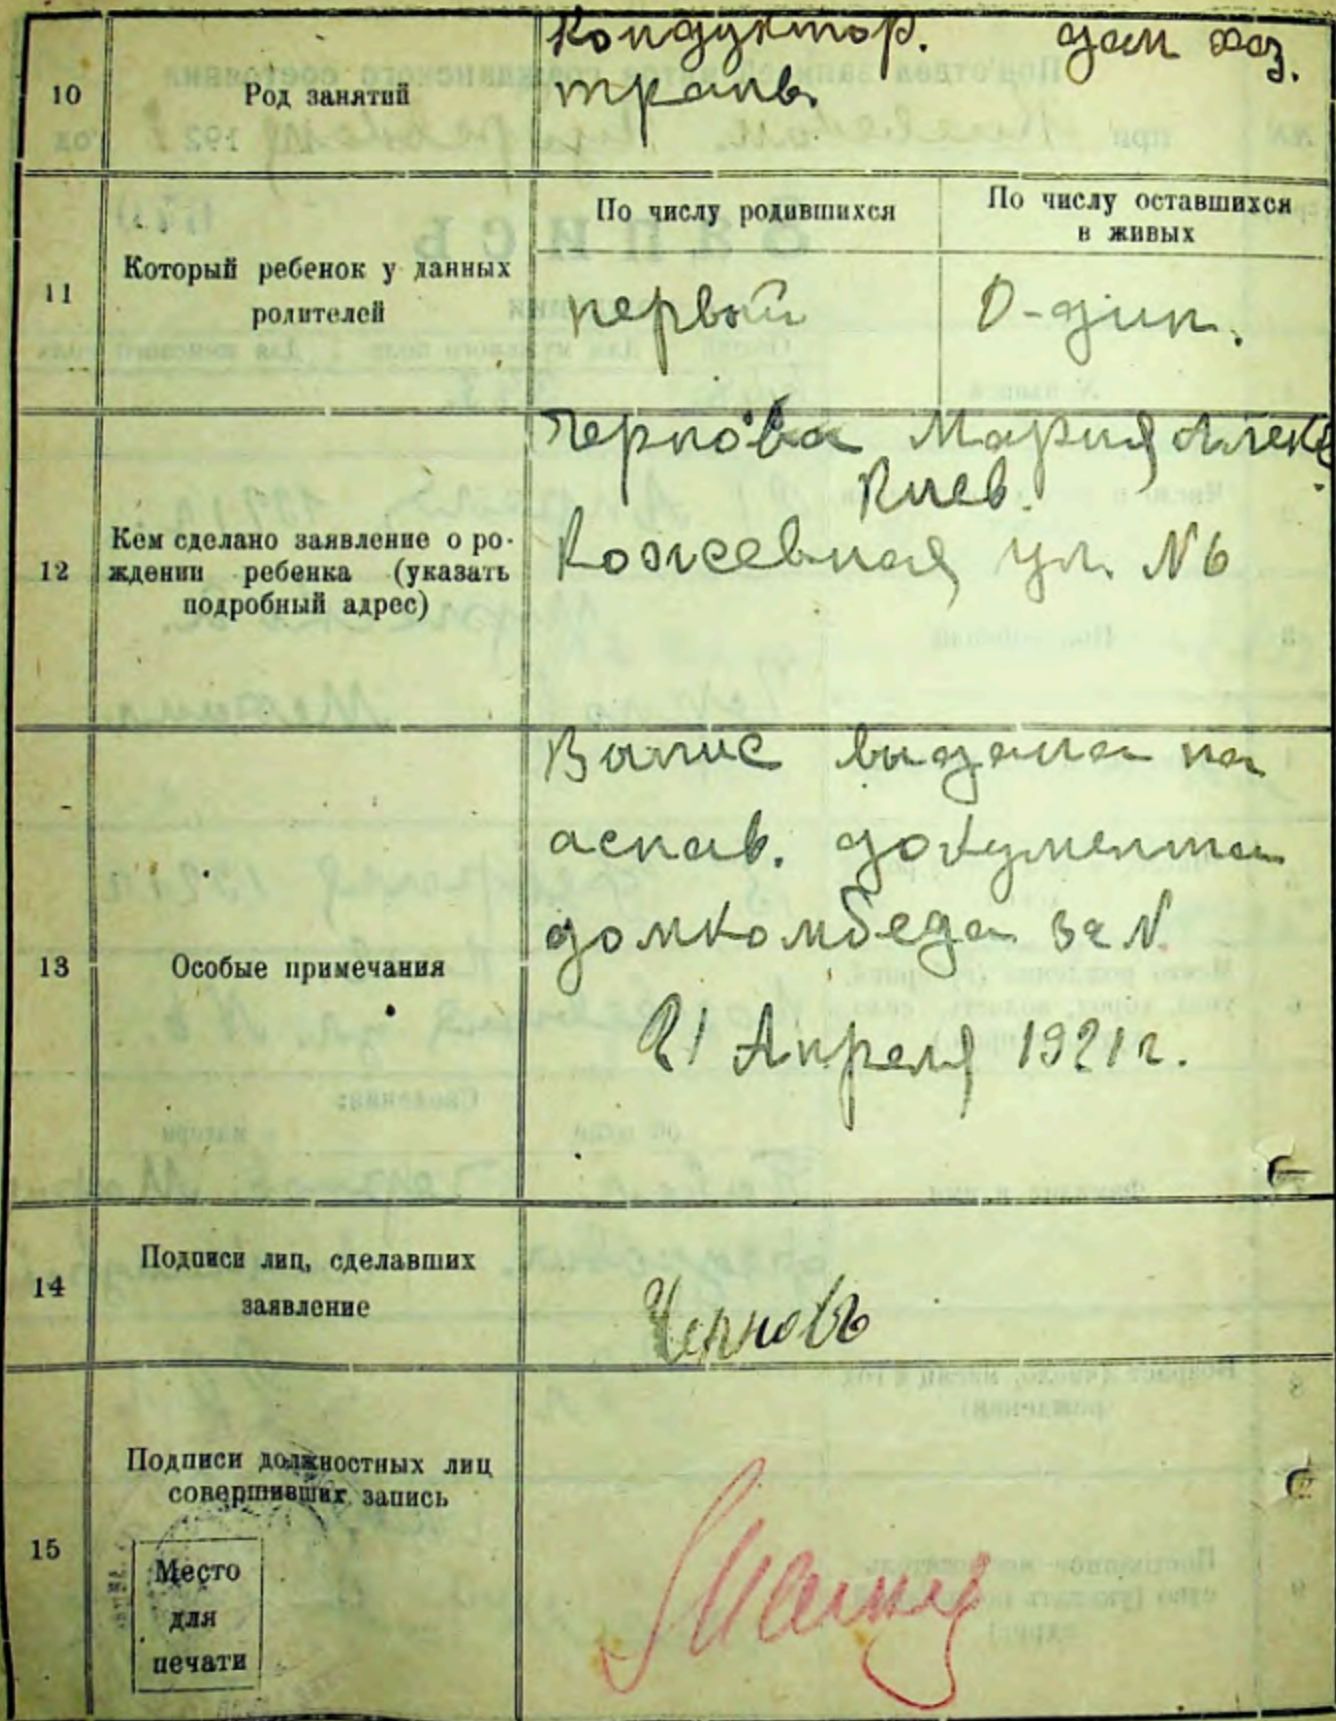 10
Род занятий
Кондуктор. дом хоз.
трамв.
11
Который ребенок у данных
родителей
По числу родившихся
По числу оставшихся
в живых
первый
О-дин.
12
Кем сделано заявление о ро-
ждении ребенка (указать
подробный адрес)
Чернова Мария Алекс
Киев.
Кожевная ул. №6
13
Особые примечания
выдана на
аснав. документа
домкомбеда за N
21 Апреля 1921 г.
14
Подписи лиц, сделавших
заявление
Черновъ
15
Подписи должностных лиц
совершивших запись
Место
для
печати